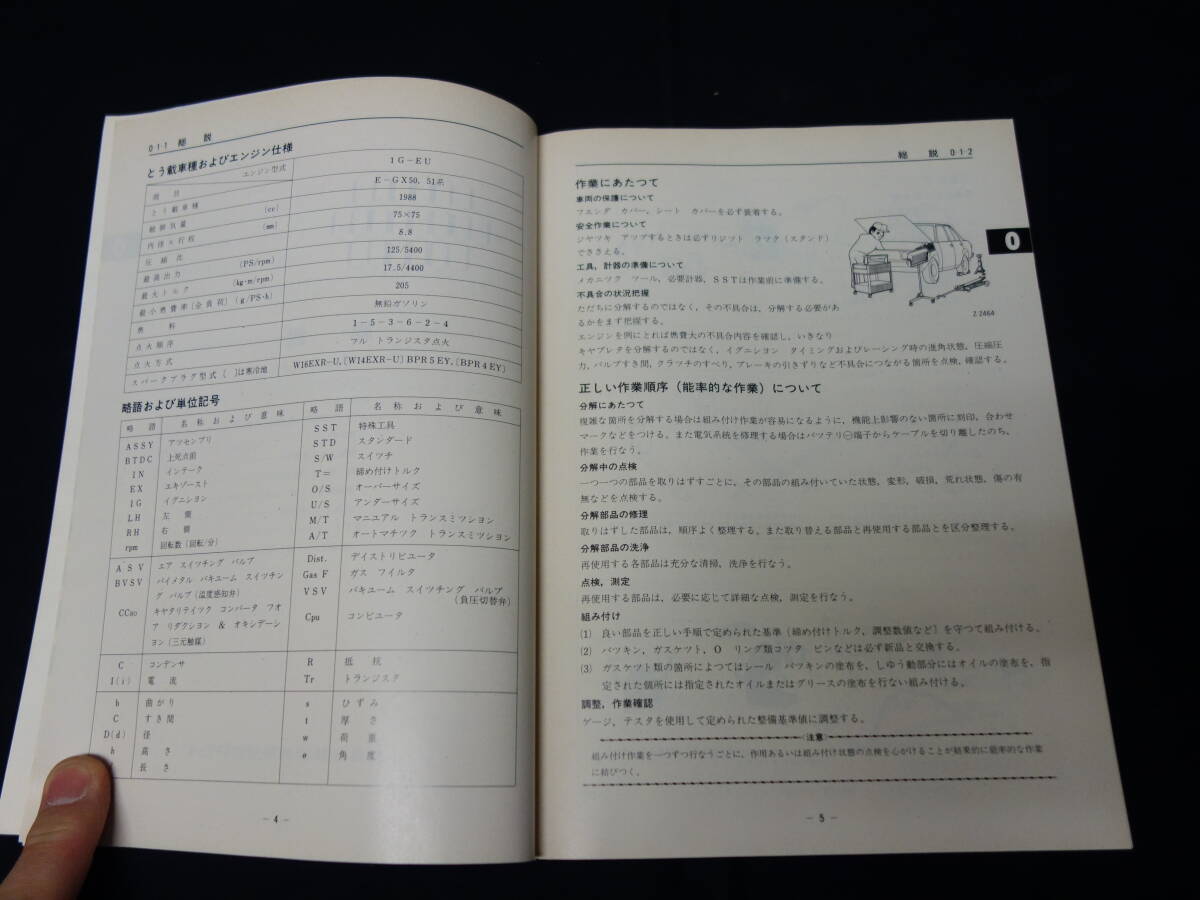 0-1-1 総 説
とう載車種およびエンジン仕様
項 目 エンジン型式 1G-EU
とう載車種 E-GX50, 51系
総排気量 (cc) 1988
内径×行程 (mm) 75×75
圧縮比 8.8
最高出力 (PS/rpm) 125/5400
最大トルク (kg-m/rpm) 17.5/4400
最小燃費率(全負荷) (g/PS・h) 205
燃料 無鉛ガソリン
点火順序 1-5-3-6-2-4
点火方式 フル トランジスタ点火
スパークプラグ型式 ( )は寒冷地 W16EXR-U, (W14EXR-U) BPR5EY, (BPR4EY)
略語および単位記号
略 語 名称および意味 略 語 名称および意味
ASSY アツセンブリ SST 特殊工具
BTDC 上死点前 STD スタンダード
IN インテーク S/W スイツチ
EX エキゾースト T= 締め付けトルク
IG イグニシヨン O/S オーバーサイズ
LH 左側 U/S アンダーサイズ
RH 右側 M/T マニユアル トランスミツシヨン
rpm 回転数(回転/分) A/T オートマチツク トランスミツシヨン
ASV エア スイツチング バルブ Dist. デイストリビユータ
BVSV バイメタル バキユーム スイツチン Gas F ガス フイルタ
グ バルブ(温度感知弁) VSV バキユーム スイツチング バルブ
(負圧切替弁)
CCRO キヤタリテイツク コンバータ フオ Cpu コンピユータ
ア リダクシヨン & オキシデーシ
ヨン(三元触媒)
C コンデンサ R 抵抗
I(i) 電流 Tr トランジスタ
b 曲がり s ひずみ
C すき間 t 厚さ
D(d) 径 w 荷重
h 高さ θ 角度
長さ
-4-
総 説 0-1-2
作業にあたつて
車両の保護について
フエンダ カバー, シート カバーを必ず装着する。
安全作業について
ジヤツキ アツプするときは必ずリジツト ラツク(スタンド)
でささえる。
工具, 計器の準備について
メカニツク ツール, 必要計器, SSTは作業前に準備する。
不具合の状況把握
ただちに分解するのではなく, その不具合は, 分解する必要があ
るかをまず把握する。
エンジンを例にとれば燃費大の不具合内容を確認し, いきなり
キヤブレタを分解するのではなく, イグニシヨン タイミングおよびレーシング時の進角状態, 圧縮圧
力, バルブすき間, クラツチのすべり, ブレーキの引きずりなど不具合につながる箇所を点検, 確認する。
Z-2464
0
正しい作業順序(能率的な作業)について
分解にあたつて
複雑な箇所を分解する場合は組み付け作業が容易になるように, 機能上影響のない箇所に刻印, 合わせ
マークなどをつける。また電気系統を修理する場合はバツテリ⊖端子からケーブルを切り離したのち,
作業を行なう。
分解中の点検
一つ一つの部品を取りはずすごとに, その部品の組み付いていた状態, 変形, 破損, 荒れ状態, 傷の有
無などを点検する。
分解部品の修理
取りはずした部品は, 順序よく整理する。また取り替える部品と再使用する部品とを区分整理する。
分解部品の洗浄
再使用する各部品は充分な清掃, 洗浄を行なう。
点検, 測定
再使用する部品は, 必要に応じて詳細な点検, 測定を行なう。
組み付け
(1) 良い部品を正しい手順で定められた基準(締め付けトルク, 調整数値など)を守つて組み付ける。
(2) パツキン, ガスケツト, O リング類コツタ ピンなどは必ず新品と交換する。
(3) ガスケツト類の箇所によつてはシール パツキンの塗布を, しゆう動部分にはオイルの塗布を, 指
定された個所には指定されたオイルまたはグリースの塗布を行ない組み付ける。
調整, 作業確認
ゲージ, テスタを使用して定められた整備基準値に調整する。
(注意)
組み付け作業を一つずつ行なうごとに, 作用あるいは組み付け状態の点検を心がけることが結果的に能率的な作業
に結びつく。
-5-